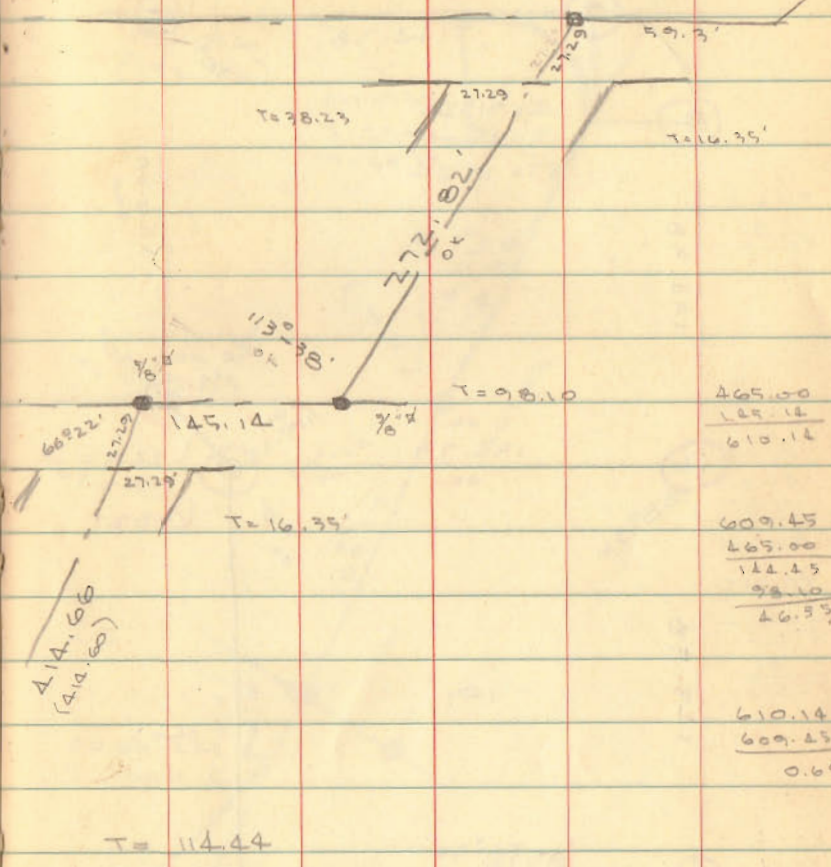 59.3'
27.29
27.29
T=38.23
T=16.35'
272.82'
OK
113°-38'
OK
5/8"
T=98.10
66°22'
27.29
145.14
5/8"
27.29'
T=16.35'
414.66
(414.60)
T= 114.44
465.00
145.14
610.14
609.45
465.00
144.45
98.10
610.14
609.45